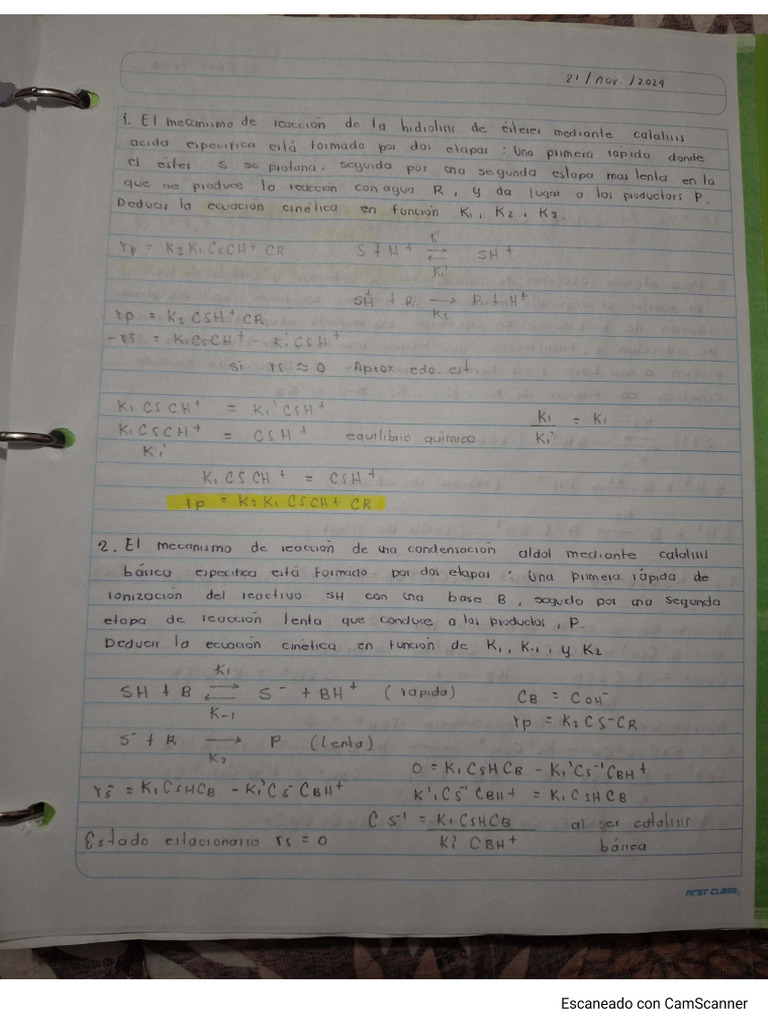 21/nov./2024
1. El mecanismo de reacción de la hidrolisis de ésteres mediante catalisis
acida especifica está formado por dos etapas: Una primera rápida donde
el éster S se protona, seguida por una segunda estapa mas lenta en la
que ne produce la reacción con agua R, y da lugar a los productors P.
Deducir la ecuación cinética en función K1, K2, K3.
rp = K2 K1 CSCH+ CR S + H+ ⇌ SH+
K1'
SH+ + R → P + H+
K2
rp = K2 CSH+ CR
-rs = K1CSCH+ - K1'CSH+
si rs ≈ 0 Aprox edo. est.
K1 CSCH+ = K1' CSH+ K1/K1' = K1
K1 CSCH+ / K1' = CSH+ equilibrio químico
K1 CSCH+ = CSH+
rp = K2 K1 CSCH+ CR
2. El mecanismo de reacción de una condensación aldol mediante catalisis
básica especifica está formado por dos etapas: Una primera rápida de
ionización del reactivo SH con una base B, seguido por una segunda
etapa de reacción lenta que conduce a los productos, P.
Deducir la ecuación cinética en función de K1, K-1, y K2
K1
SH + B ⇌ S- + BH+ (rapida) CB = COH-
K-1 rp = K2 CS- CR
S- + R → P (lenta)
K2
0 = K1 CSHCB - K1'CS-1 CBH+
rs- = K1 CSHCB - K1'CS- CBH+ K'1 CS-1 CBH+ = K1 CSHCB
CS-1 = K1 CSHCB / K1' CBH+ al ser catalisis
Estado estacionario rs = 0 básica
FIRST CLASS
Escaneado con CamScanner